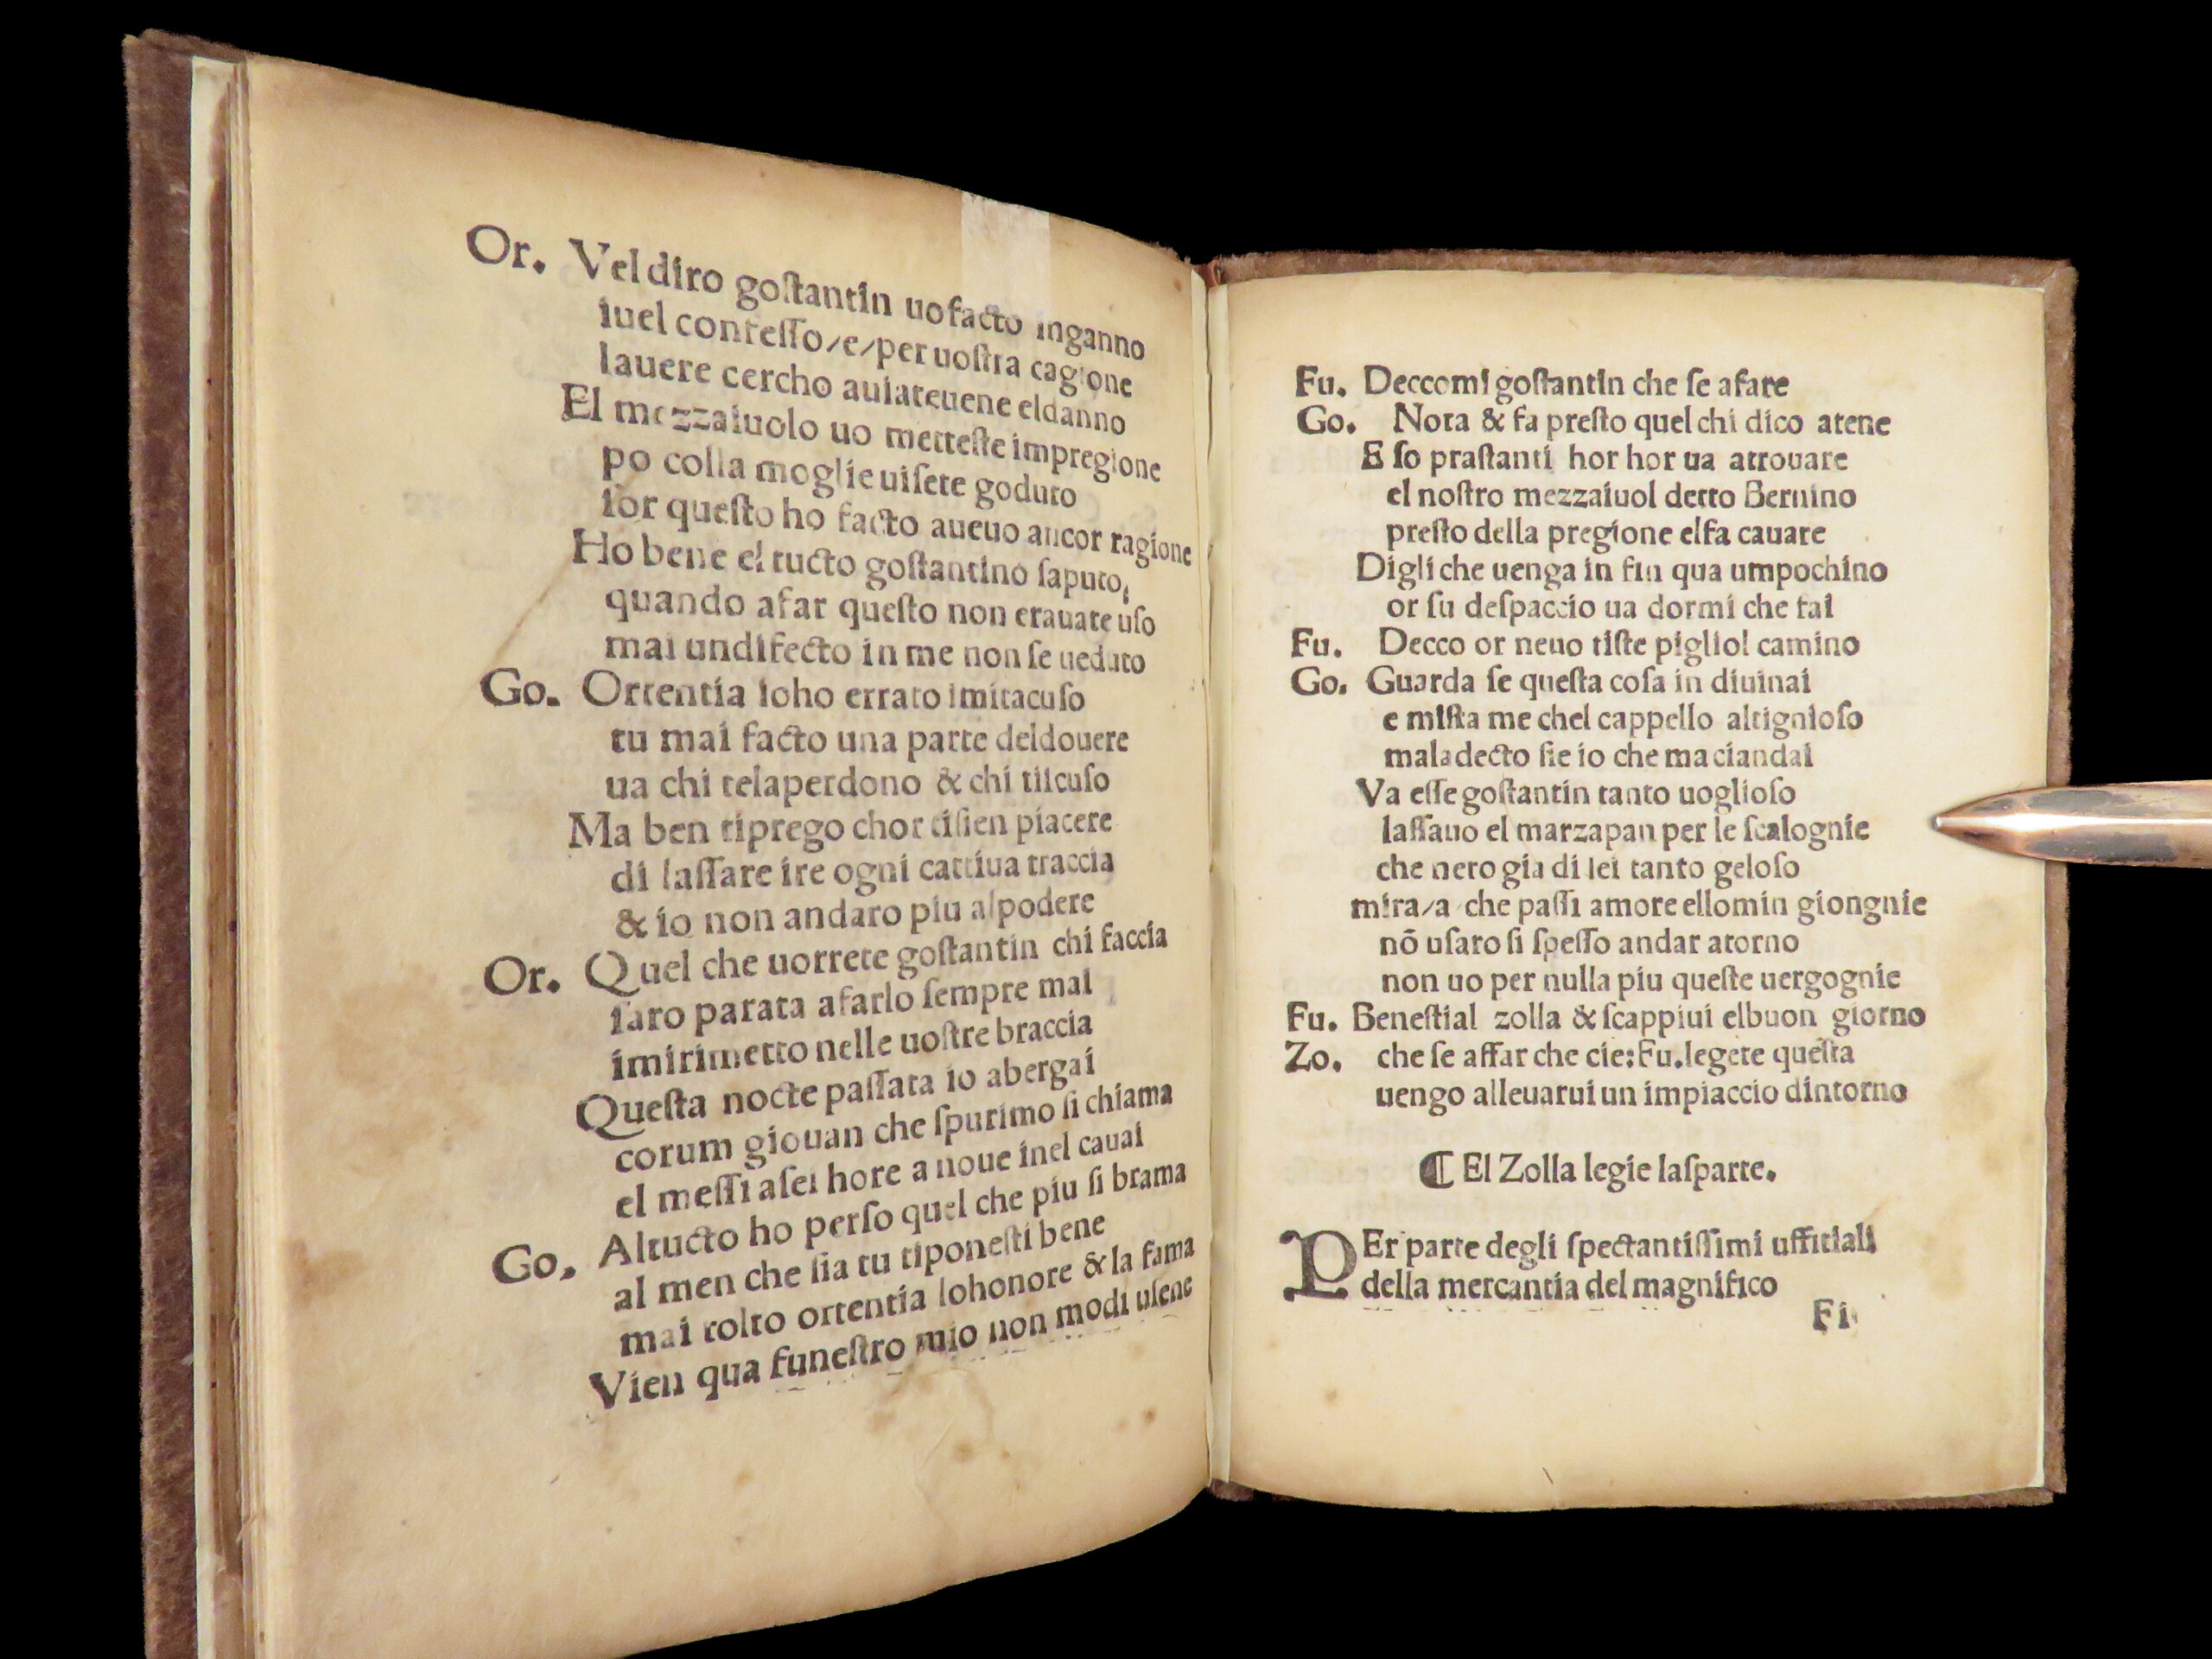 Or. Vel diro goſtantin uo facto inganno
iuel confeſſo/e/per uoſtra cagione
lauere cercho auiateuene eldanno
El mezzaiuolo uo metteſte impregione
po colla moglie uiſete goduto
ior queſto ho facto aueuo ancor ragione
Ho bene el tucto goſtantino ſaputo,
quando afar queſto non erauate uſo
mai undifecto in me non ſe ueduto
Go. Ortentia ioho errato imitacuſo
tu mai facto una parte deidouere
ua chi telaperdono & chi tiſcuſo
Ma ben tiprego chor tiſien piacere
di laſſare ire ogni cattiua traccia
& io non andaro piu alpodere
Or. Quel che uorrete goſtantin chi faccia
ſaro parata afarlo ſempre mai
imirimetto nelle uoſtre braccia
Queſta nocte paſſata io abergai
corum giouan che ſpurimo ſi chiama
el meſſi aſei hore a noue inel cauai
Go. Altucto ho perſo quel che piu ſi brama
al men che ſia tu tiponeſti bene
mai tolto ortentia lohonore & la fama
Vien qua funeſtro mio non modi uſene
Fu. Deccomi goſtantin che ſe afare
Go. Nota & fa preſto quel chi dico atene
E ſo praſtanti hor hor ua atrouare
el noſtro mezzaiuol detto Bernino
preſto della pregione elfa cauare
Digli che uenga in fin qua umpochino
or ſu deſpaccio ua dormi che fai
Fu. Decco or neuo tiſte pigliol camino
Go. Guarda ſe queſta coſa in diuinai
e miſta me chel cappello altignioſo
maladecto ſie io che maciandai
Va eſſe goſtantin tanto uoglioſo
laſſauo el marzapan per le ſcalognie
che nero gia di lei tanto geloſo
mira/a che paſſi amore ellomin giongnie
nō uſaro ſi ſpeſſo andar atorno
non uo per nulla piu queſte uergognie
Fu. Beneſtial zolla & ſcappiui elbuon giorno
Zo. che ſe affar che cie: Fu. legete queſta
uengo alleuarui un impiaccio dintorno
¶ El Zolla legie laſparte.
PEr parte degli ſpectantiſſimi uffitiali
della mercantia del magnifico
Fi